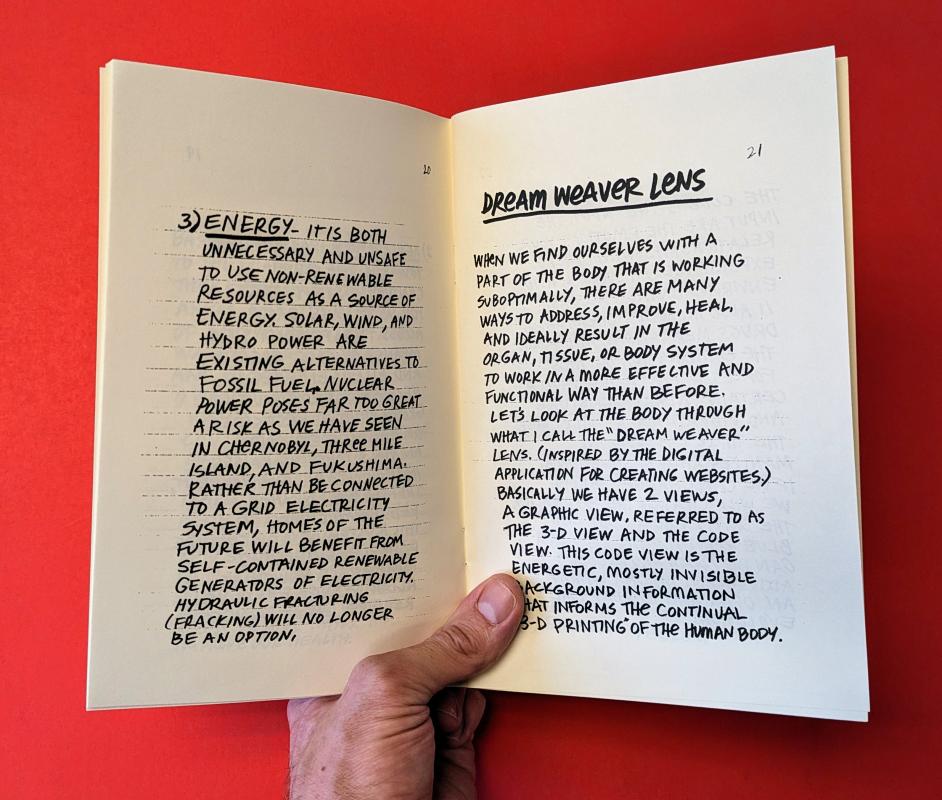 20
3) ENERGY- IT IS BOTH
UNNECESSARY AND UNSAFE
TO USE NON-RENEWABLE
RESOURCES AS A SOURCE OF
ENERGY. SOLAR, WIND, AND
HYDRO POWER ARE
EXISTING ALTERNATIVES TO
FOSSIL FUEL. NUCLEAR
POWER POSES FAR TOO GREAT
A RISK AS WE HAVE SEEN
IN CHERNOBYL, THREE MILE
ISLAND, AND FUKUSHIMA.
RATHER THAN BE CONNECTED
TO A GRID ELECTRICITY
SYSTEM, HOMES OF THE
FUTURE WILL BENEFIT FROM
SELF-CONTAINED RENEWABLE
GENERATORS OF ELECTRICITY.
HYDRAULIC FRACTURING
(FRACKING) WILL NO LONGER
BE AN OPTION,
21
DREAM WEAVER LENS
WHEN WE FIND OURSELVES WITH A
PART OF THE BODY THAT IS WORKING
SUBOPTIMALLY, THERE ARE MANY
WAYS TO ADDRESS, IMPROVE, HEAL,
AND IDEALLY RESULT IN THE
ORGAN, TISSUE, OR BODY SYSTEM
TO WORK IN A MORE EFFECTIVE AND
FUNCTIONAL WAY THAN BEFORE.
LET'S LOOK AT THE BODY THROUGH
WHAT I CALL THE "DREAM WEAVER"
LENS. (INSPIRED BY THE DIGITAL
APPLICATION FOR CREATING WEBSITES.)
BASICALLY WE HAVE 2 VIEWS,
A GRAPHIC VIEW, REFERRED TO AS
THE 3-D VIEW AND THE CODE
VIEW. THIS CODE VIEW IS THE
ENERGETIC, MOSTLY INVISIBLE
ACKGROUND INFORMATION
HAT INFORMS THE CONTINUAL
3-D PRINTING" OF THE HUMAN BODY.